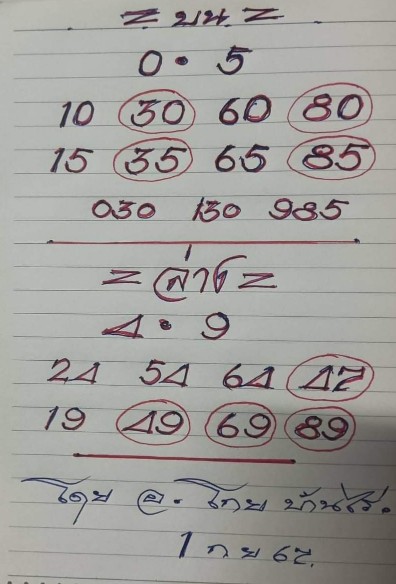 = บน =
0 • 5
10 30 60 80
15 35 65 85
030 130 985
= ล่าง =
4 • 9
24 54 64 47
19 49 69 89
โดย อ. โทย บ้านไร่.
1 ก ย 67.